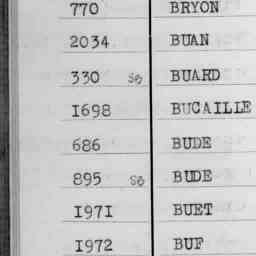 770 BRYON
2034 BUAN
330 SB BUARD
1698 BUCAILLE
686 BUDE
895 SB BUDE
1971 BUET
1972 BUF